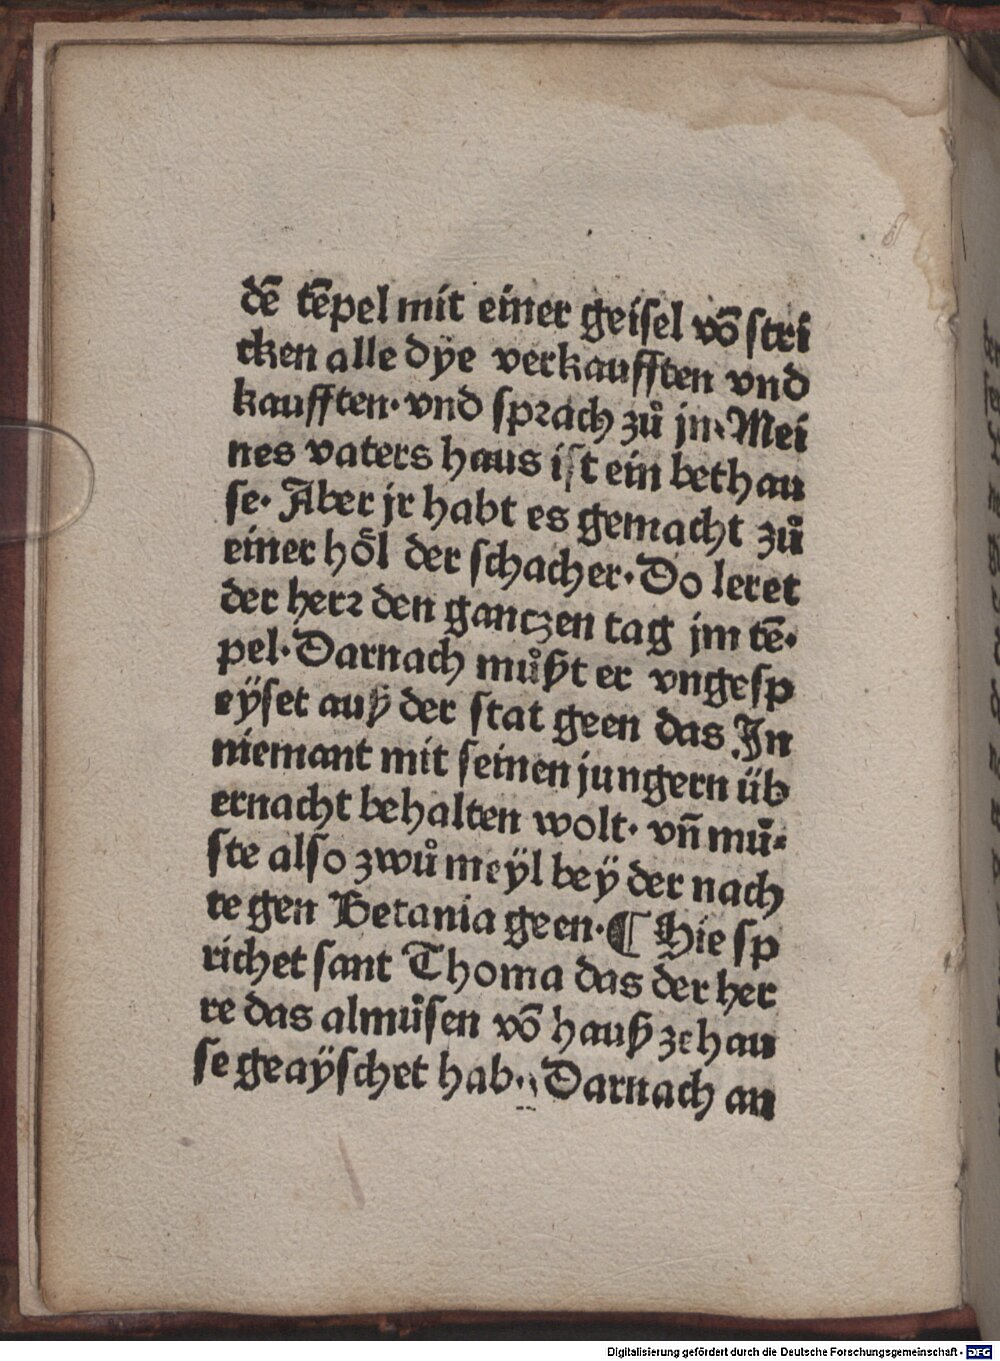 dē tēpel mit einer geisel vō stri
cken alle dÿe verkaufften vnd
kaufften· vnd sprach zů jn· Mei
nes vaters haus ist ein bethau
se· Aber jr habt es gemacht zů
einer hȯ̈l der schacher· Do leret
der herꝛ den gantzen tag jm tē·
pel· Darnach můßt er vngesp
eÿset auß der stat geen das In
niemant mit seinen jungern üb
ernacht behalten wolt· vñ mů⸗
ste also zwů meÿl beÿ der nach
te gen Betania geen· ¶ Hie sp
richet sant Thoma das der her
re das almůsen vō hauß ze hau
se geaÿschet hab· Darnach an
Digitalisierung gefördert durch die Deutsche Forschungsgemeinschaft - DFG